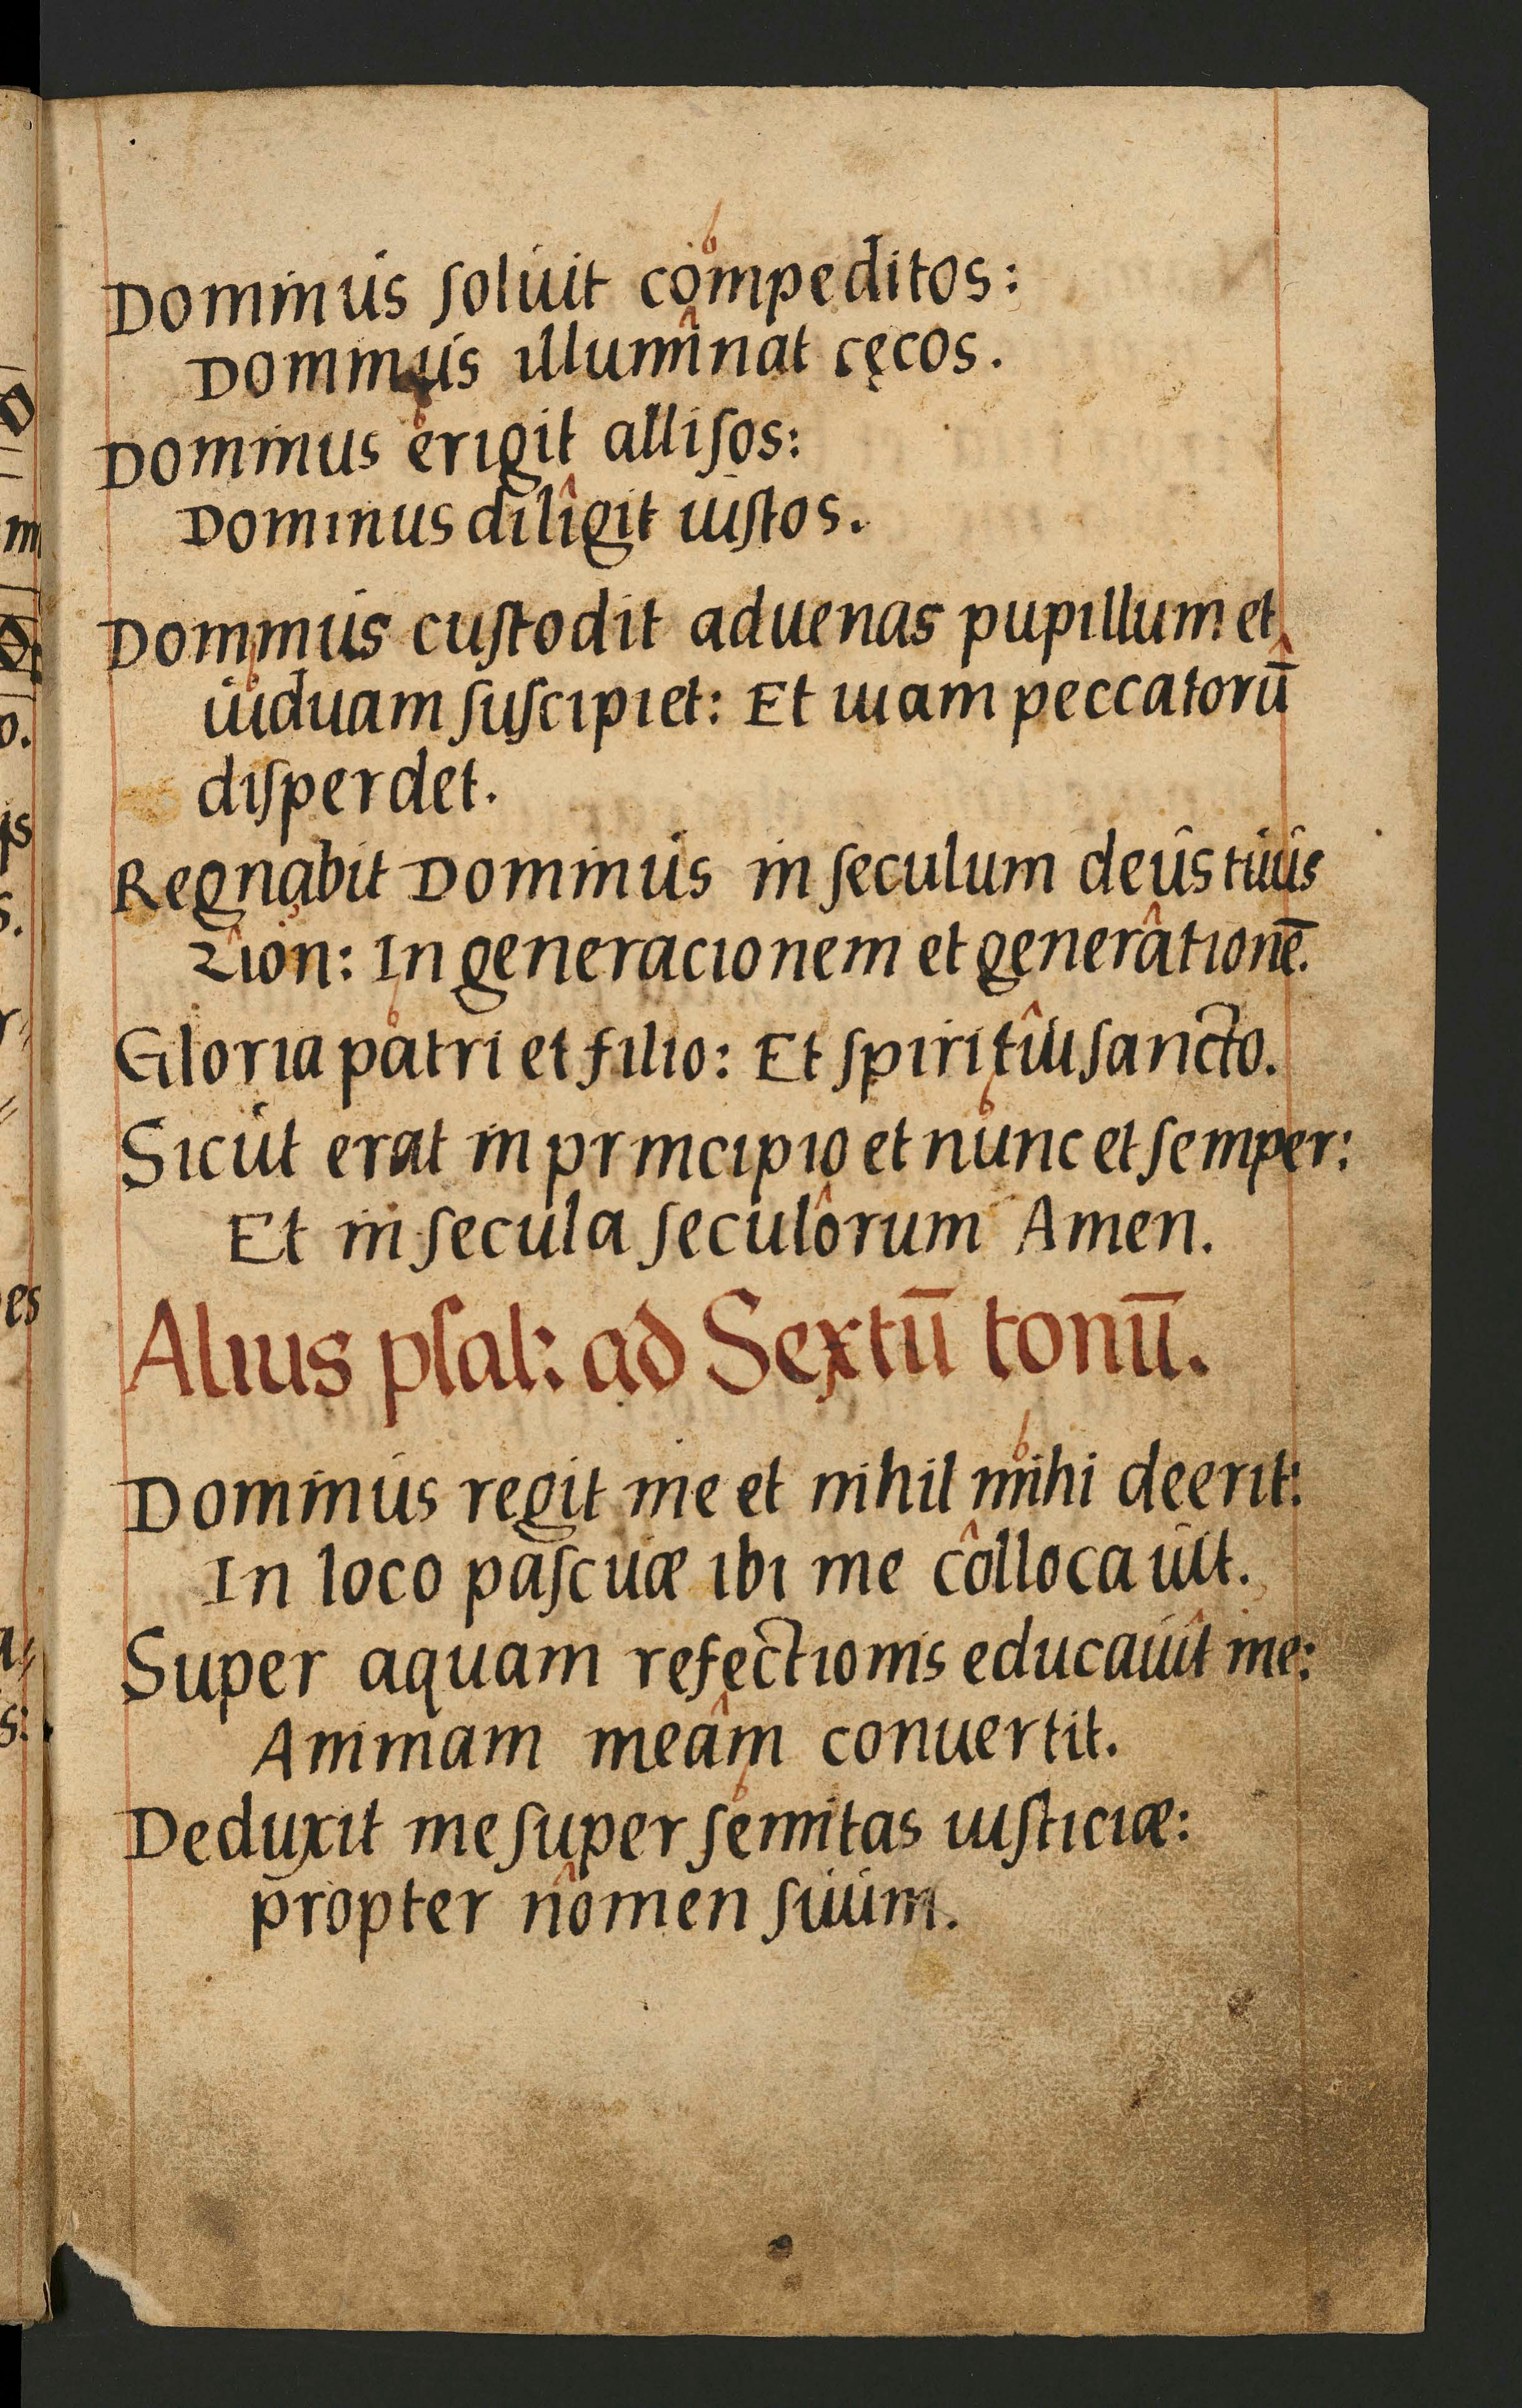 Dominus ſoluit compeditos:
Dominus illuminat cęcos.
Dominus erigit alliſos:
Dominus diligit iuſtos.
Dominus cuſtodit aduenas pupillum et
uiduam ſuſcipiet: Et uiam peccatorū
diſperdet.
Regnabit Dominus in ſeculum deus tuus
Zion: In generacionem et generationē.
Gloria patri et filio: Et ſpiritui ſancto.
Sicut erat in principio et nunc et ſemper:
Et in ſecula ſeculorum Amen.
Alius pſal: ad Sextū tonū.
Dominus regit me et nihil mihi deerit:
In loco paſcuæ ibi me collocauit.
Super aquam refectionis educauit me:
Animam meam conuertit.
Deduxit me ſuper ſemitas iuſticiæ:
propter nomen ſuum.